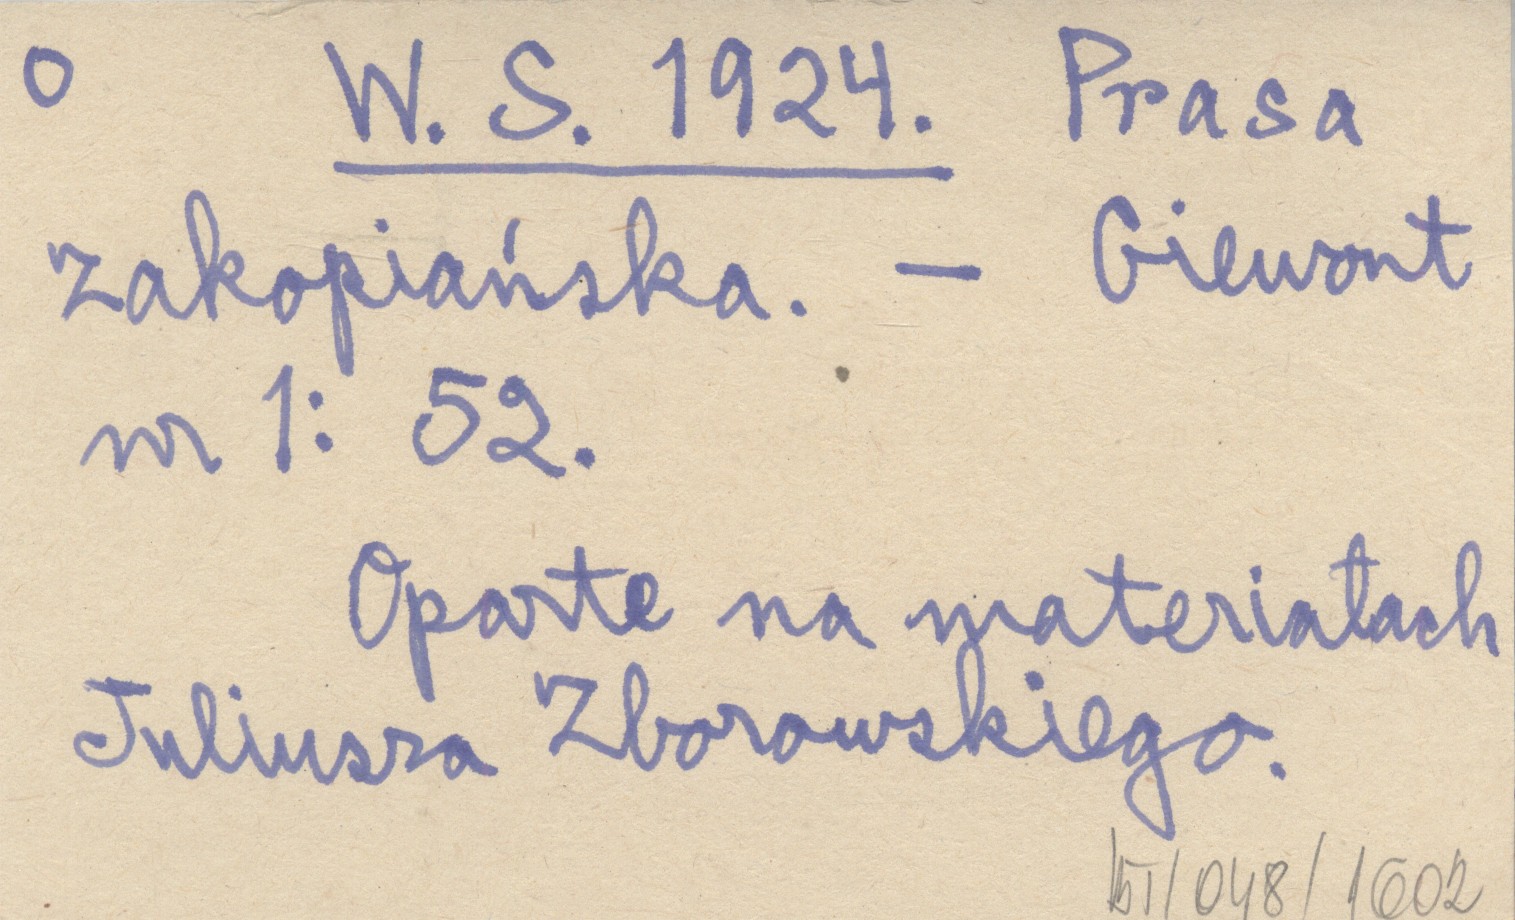 o W. S. 1924. Prasa
zakopiańska. — Giewont
nr 1: 52.
Oparte na materiałach
Juliusza Zborowskiego.
/048/1602